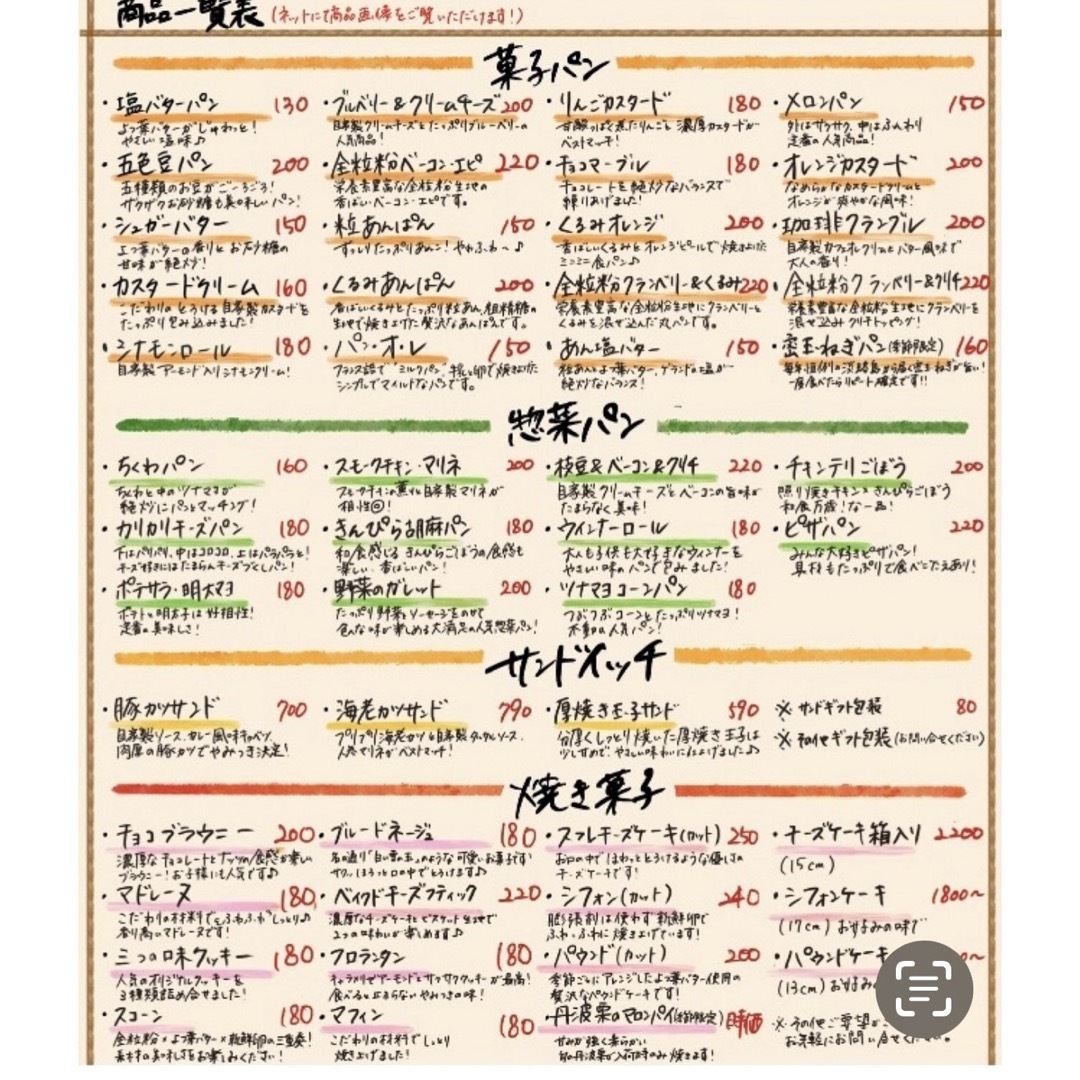 商品一覧表 (ネットにて商品画像をご覧いただけます!)
菓子パン
・塩バターパン 130
よつ葉バターがじゅわっと!
やさしい塩味♪
・ブルベリー&クリームチーズ 200
自家製クリームチーズとたっぷりブルーベリーの
人気商品!
・りんごカスタード 180
甘酸っぱく煮たりんごと濃厚カスタードが
ベストマッチ!
・メロンパン 150
外はサクサク、中はふんわり
定番の人気商品!
・五色豆パン 200
五種類のお豆がごーろごろ!
ザクザクお砂糖も美味しいパン!
・全粒粉ベーコン・エピ 220
栄養素豊富な全粒粉生地の
香ばしいベーコン・エピです。
・チョコマーブル 180
チョコレートを絶妙なバランスで
練りあげました!
・オレンジカスタード 200
なめらかなカスタードクリームと
オレンジが爽やかな風味!
・シュガーバター 150
よつ葉バターの香りとお砂糖の
甘味が絶妙!
・粒あんぱん 150
ずっしりたっぷりあんこ!やわふわ〜♪
・くるみオレンジ 200
香ばしいくるみとオレンジピールで焼き上げた
ミニミニ食パン♪
・珈琲クランブル 200
自家製カフェオレクリームとバター風味で
大人の香り!
・カスタードクリーム 160
こだわりのとろける自家製カスタードを
たっぷり包み込みました!
・くるみあんぱん 200
香ばしいくるみとたっぷり粒あん、粗精糖の
生地で焼き上げた贅沢なあんぱんです。
・全粒粉クランベリー&くるみ 220
栄養素豊富な全粒粉生地にクランベリーと
くるみを混ぜ込んだ丸パンです。
・全粒粉クランベリー&クリチ 220
栄養素豊富な全粒粉生地にクランベリーを
混ぜ込みクリチトッピング!
・シナモンロール 180
自家製アーモンド入りシナモンクリーム!
・パン・オ・レ 150
フランス語で"ミルクパン"、牛乳と卵で焼き上げた
シンプルでマイルドなパンです。
・あん塩バター 150
粒あんとよつ葉バター、ゲランドの塩が
絶妙なバランス!
・蜜玉ねぎパン(季節限定) 160
毎年恒例の淡路島から届く蜜玉ねぎが旨い!
一度食べたらリピート確定です!!
惣菜パン
・ちくわパン 160
ちくわと中のツナマヨが
絶妙にパンとマッチング!
・スモークチキン・マリネ 200
スモークチキンの薫りと自家製マリネが
相性◎!
・枝豆&ベーコン&クリチ 220
自家製クリームチーズとベーコンの旨味が
たまらなく美味!
・チキンテリごぼう 200
照り焼きチキン×きんぴらごぼう
和食万歳!な一品!
・カリカリチーズパン 180
下はパリパリ、中はコロコロ、上はパラパラと!
チーズ好きにはたまらんチーズづくしパン!
・きんぴら胡麻パン 180
和食感じるきんぴらごぼうの食感も
楽しい、香ばしいパン!
・ウィンナーロール 180
大人も子供も大好きなウィンナーを
やさしい味のパンで包みました!
・ピザパン 220
みんな大好きピザパン!
具材もたっぷりで食べごたえあり!
・ポテサラ・明太マヨ 180
ポテトと明太子は好相性!
定番の美味しさ!
・野菜のガレット 200
たっぷり野菜とソーセージをのせて
色んな味が楽しめる大満足の人気惣菜パン!
・ツナマヨコーンパン 180
つぶつぶコーンとたっぷりツナマヨ!
不動の人気パン!
サンドイッチ
・豚カツサンド 700
自家製ソース、カレー風味キャベツ、
肉厚の豚カツでやみつき決定!
・海老カツサンド 790
プリプリ海老カツと自家製タルタルソース、
人参マリネがベストマッチ!
・厚焼き玉子サンド 590
分厚くしっとり焼いた厚焼き玉子は
少し甘めで、やさしい味わいに仕上げました♪
※ サンドギフト包装 80
※ その他ギフト包装(お問い合せください)
焼き菓子
・チョコブラウニー 200
濃厚なチョコレートとナッツの食感が楽しい
ブラウニー!お子様にも人気です♪
・ブルードネージュ 180
名の通り"白い雪の玉"のような可愛いお菓子です!
サクッほろっと口の中でとろけます♪
・スフレチーズケーキ(カット) 250
お口の中でほわっととろけるような優しさの
チーズケーキです!
・チーズケーキ箱入り 2200
(15cm)
・マドレーヌ 180
こだわりの材料で"ふわふわ"しっとり♪
香り高いマドレーヌです!
・ベイクドチーズスティック 220
濃厚なチーズケーキとビスケット生地で
2つの味わいが楽しめます♪
・シフォン(カット) 240
膨張剤は使わず新鮮卵で
ふわ・ふわに焼き上げています!
・シフォンケーキ 1800〜
(17cm) お好みの味で
・三つの味クッキー 180
人気のオリジナルクッキーを
3種類詰め合せました!
・フロランタン 180
キャラメリゼアーモンドとサクサククッキーが最高!
食べると止まらないやみつきの味!
・パウンド(カット) 200
季節ごとにアレンジしたよつ葉バター使用の
贅沢なパウンドケーキです!
・パウンドケーキ
(13cm) お好み
・スコーン 180
全粒粉×よつ葉バター×新鮮卵の三重奏!
素材の美味しさをお楽しみください!
・マフィン 180
こだわりの材料でしっとり
焼き上げました!
・丹波栗のマロンパイ(季節限定) 時価
甘みが強く柔らかい
旬の丹波栗が入荷時のみ焼きます!
※ その他ご要望がご
お気軽にお問い合せください。